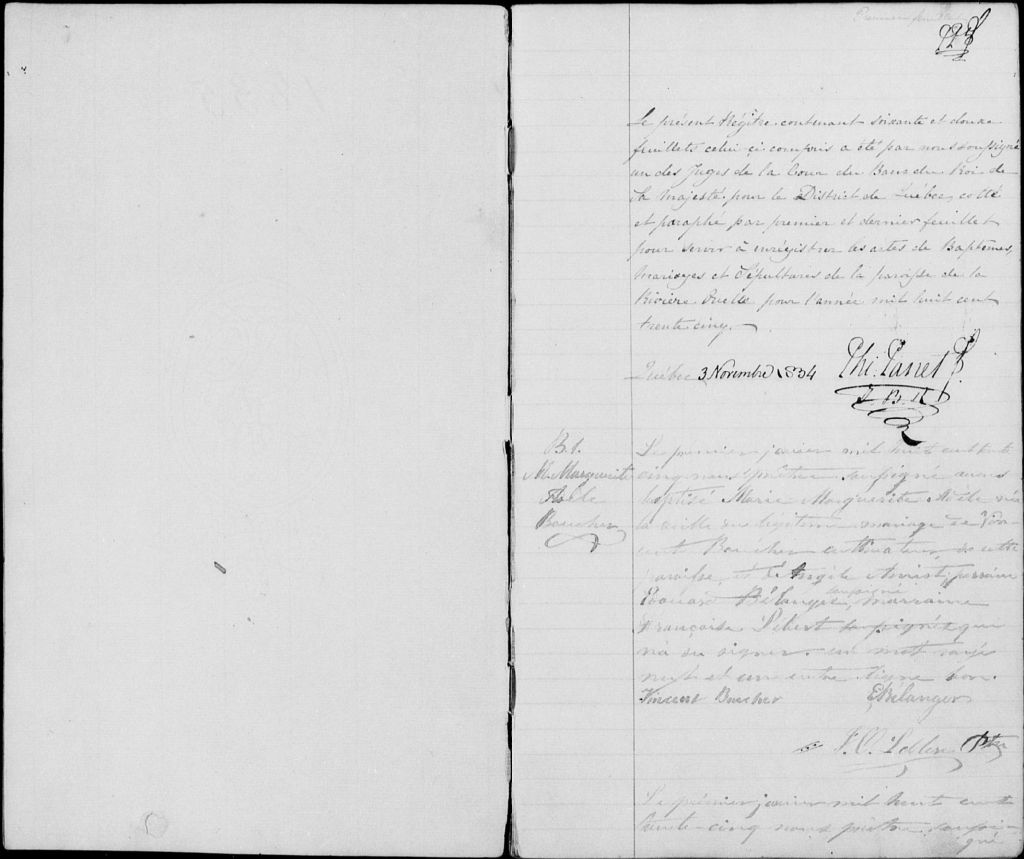 Le présent Régître contenant soixante et douze
feuillets celui ci compris a été par nous soussigné
un des Juges de la Cour du Banc du Roi de
Sa Majesté pour le District de Québec, cotté
et paraphé par premier et dernier feuillet
pour servir à enrégistrer les actes de Baptêmes,
Mariages et Sépultures de la paroisse de la
Rivière Ouelle pour l'année mil huit cent
trente cinq.
Québec 3 Novembre 1834 Phi. Panet
J. B. R.
B.1.
M. Marguerite
Adèle
Boucher
Le prémier janvier mil huit cent trente
cinq nous prêtre soussigné avons
baptisé Marie Marguerite Adèle née
la veille du légitime mariage de Vin
cent Boucher cultivateur de cette
paroisse, et d'Angèle Miville, parrain
soussigné
Edouard Bélanger, marraine
Françoise soussignés qui
n'a su signer. un mot rayé
nul et un entre ligne bon.
Vincent Boucher EBélanger
Ptre
Le prémier janvier mil huit cent
trente-cinq nous prêtre soussi-
gné